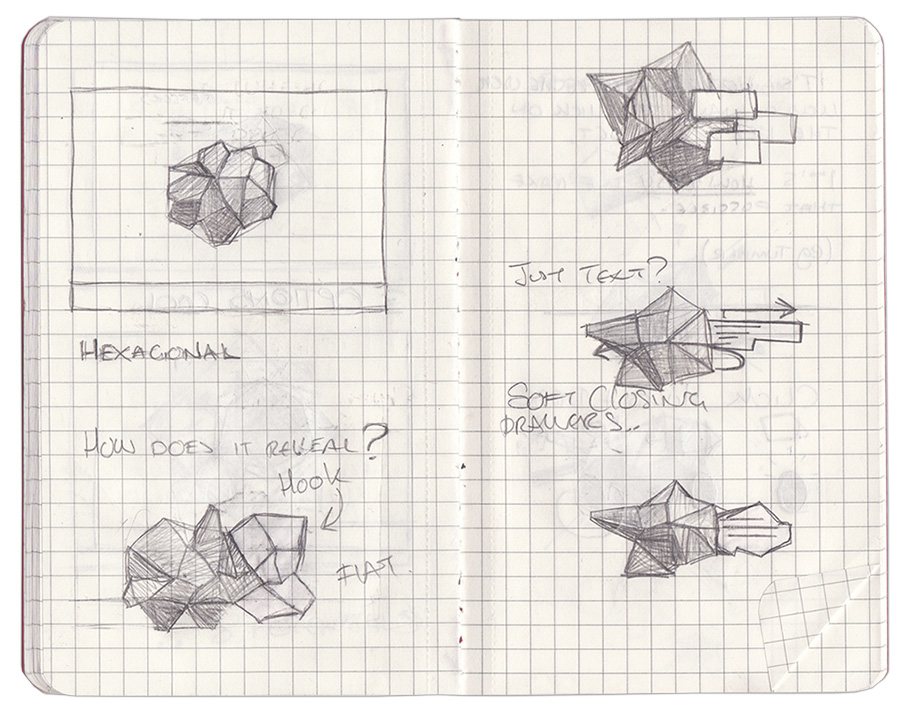 HEXAGONAL
HOW DOES IT REVEAL?
HOOK
FLAT.
JUST TEXT?
SOFT CLOSING
DRAWERS..